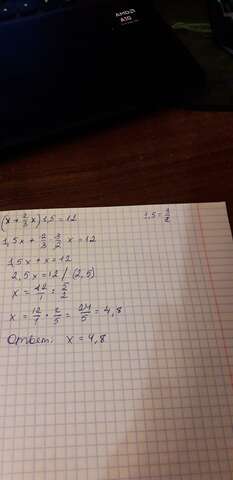 AMD
A10
(x + 2/3 x) 1,5 = 12
1,5 = 3/2
1,5x + 2/3 · 3/2 x = 12
1,5x + x = 12
2,5x = 12 / (2,5)
x = 12/1 : 5/2
x = 12/7 · 2/5 = 24/5 = 4,8
Ответ: x = 4,8